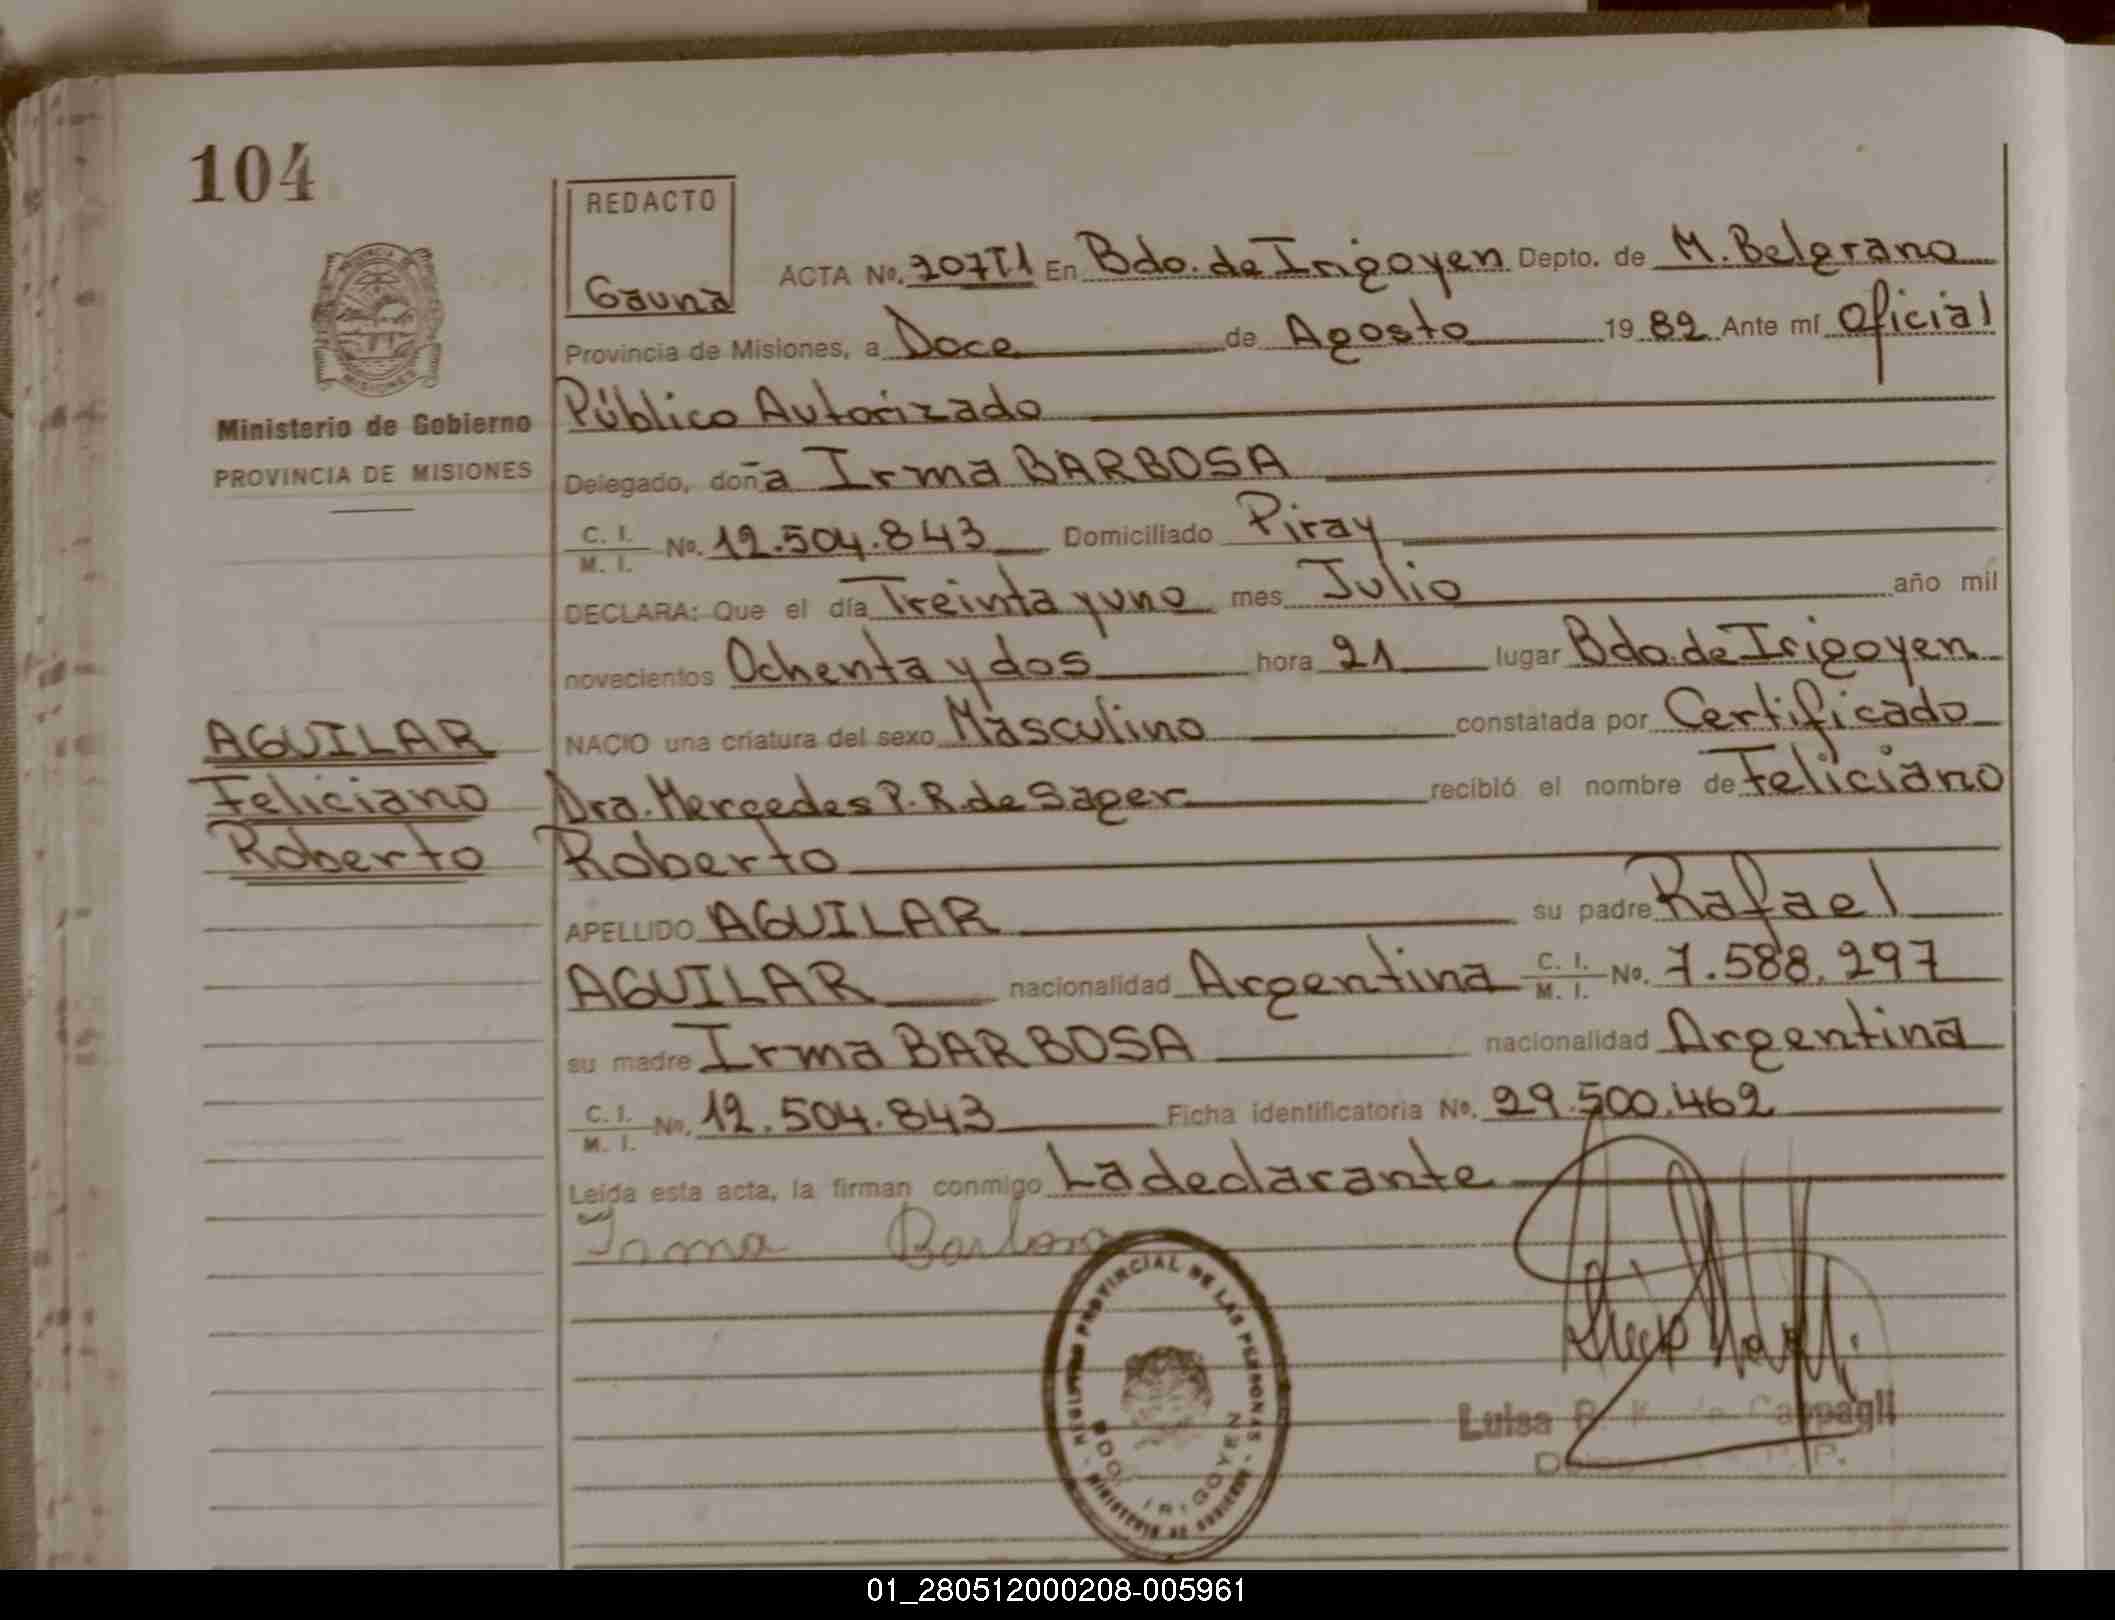 104
REDACTO
Gauna
ACTA No. 207T1 En Bdo. de Irigoyen Depto. de M. Belgrano
Provincia de Misiones, a Doce de Agosto 19 82 Ante mí Oficial
Público Autorizado
Ministerio de Gobierno
PROVINCIA DE MISIONES
Delegado, doña Irma BARBOSA
C. I.
M. I. No. 12.504.843 Domiciliado Piray
DECLARA: Que el día Treinta y uno mes Julio año mil
novecientos Ochenta y dos hora 21 lugar Bdo. de Irigoyen
NACIO una criatura del sexo Masculino constatada por Certificado
Dra. Mercedes P. R. de Sager recibió el nombre de Feliciano
Roberto
AGUILAR
Feliciano
Roberto
APELLIDO AGUILAR su padre Rafael
AGUILAR nacionalidad Argentina C. I.
M. I. No. 7.588.297
su madre Irma BARBOSA nacionalidad Argentina
C. I.
M. I. No. 12.504.843 Ficha identificatoria No. 29.500.462
Leída esta acta, la firman conmigo La declarante
Irma Barbosa
REGISTRO PROVINCIAL DE LAS PERSONAS
BDO. IRIGOYEN
MINISTERIO DE GOBIERNO
Luisa
Cappagli
01_280512000208-005961